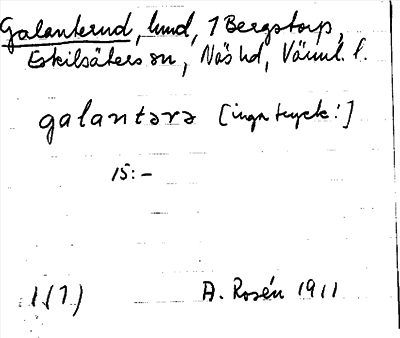 Galanterud, lund, 1 Bergstorp,
Eskilsäters sn, Näs hd, Värml. l.
galantərə [inga tryck!]
15:-
1(1) A. Rosén 1911